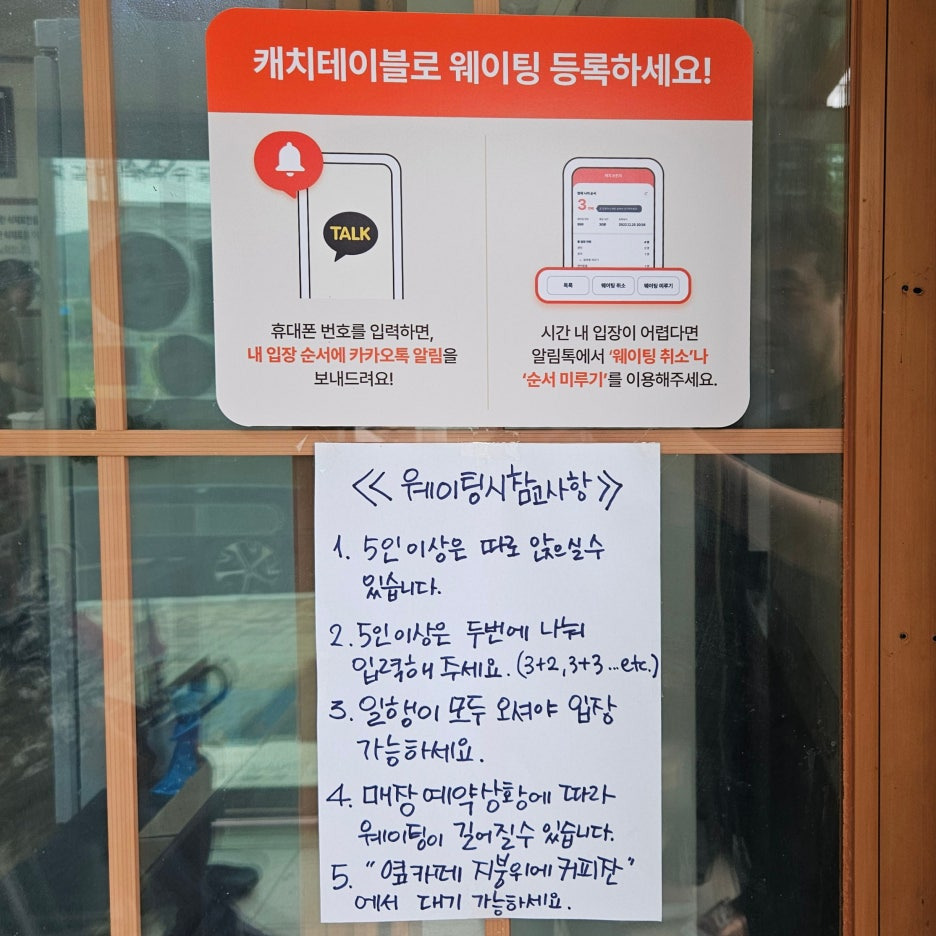 캐치테이블로 웨이팅 등록하세요!
TALK
휴대폰 번호를 입력하면,
내 입장 순서에 카카오톡 알림을
보내드려요!
3
목록
웨이팅 취소
웨이팅 미루기
시간 내 입장이 어렵다면
알림톡에서 '웨이팅 취소'나
'순서 미루기'를 이용해주세요.
<< 웨이팅시 참고사항 >>
1. 5인 이상은 따로 앉으실수
있습니다.
2. 5인 이상은 두번에 나눠
입력해 주세요. (3+2, 3+3 ...etc.)
3. 일행이 모두 오셔야 입장
가능하세요.
4. 매장 예약상황에 따라
웨이팅이 길어질수 있습니다.
5. "옆카페 지붕위에 커피잔"
에서 대기 가능하세요.